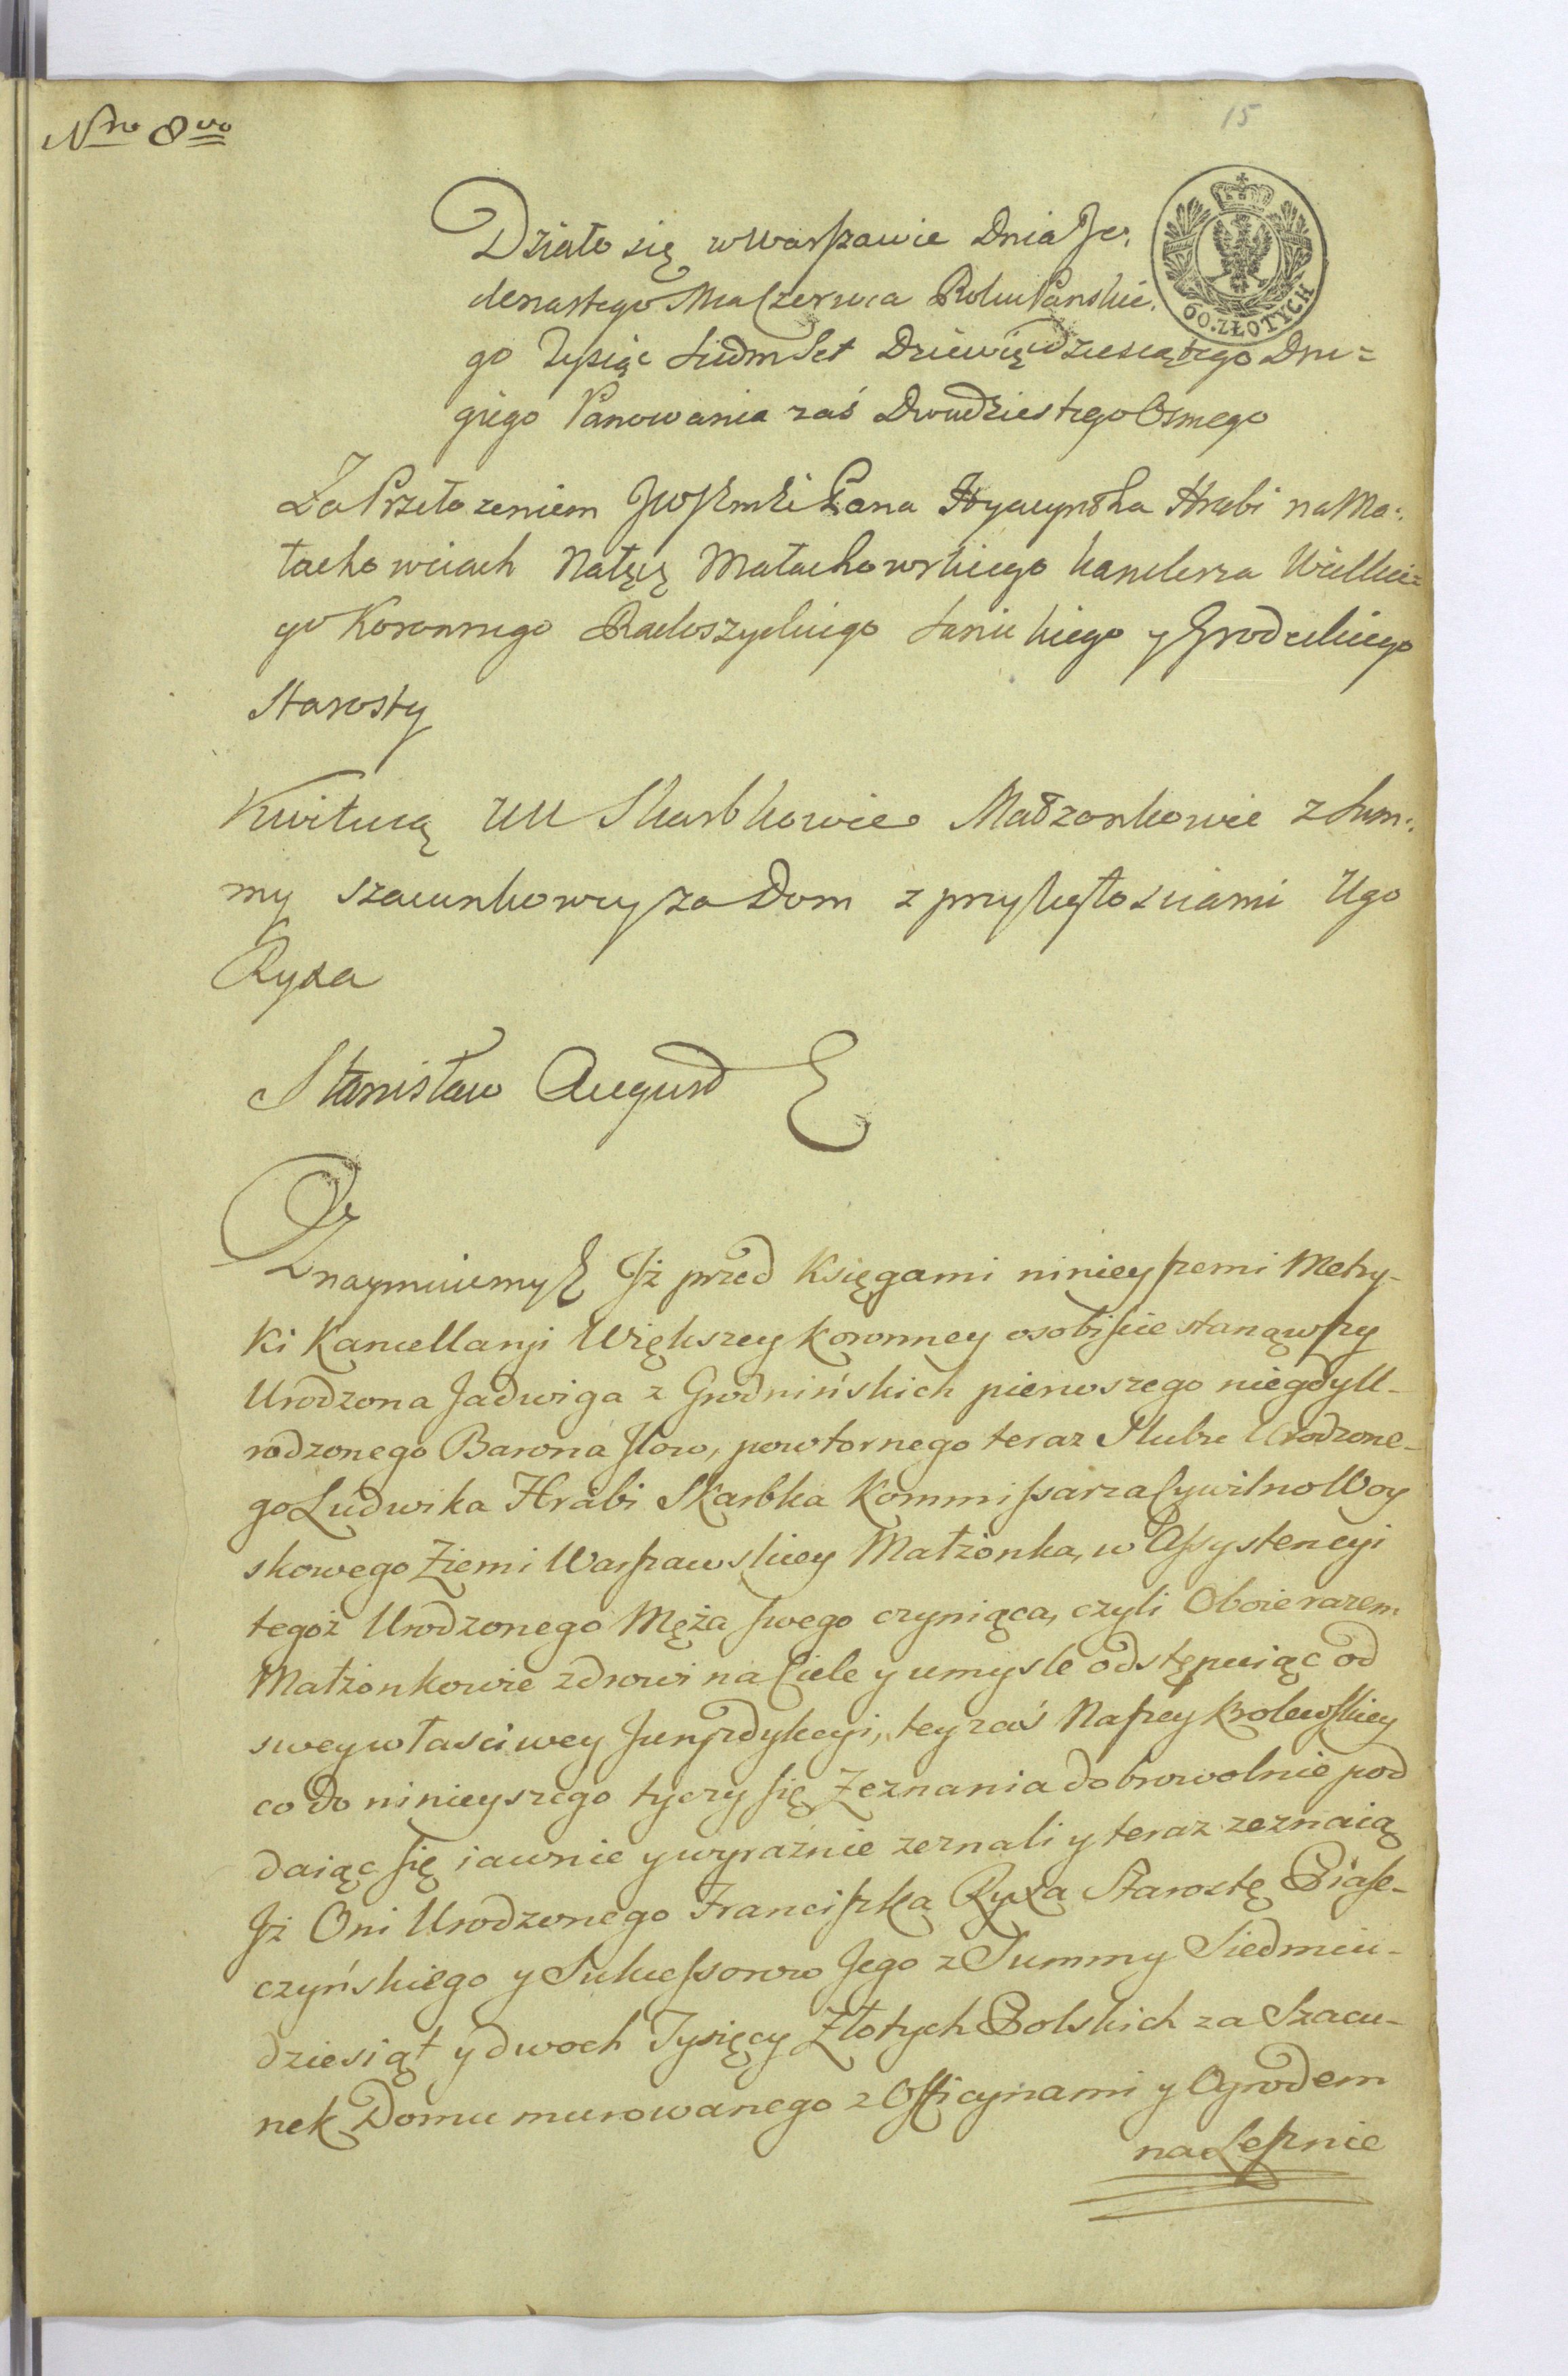 Nro 8vo
15
60. ZŁOTYCH
Działo się w Warszawie Dnia Je,
denastego Mca Czerwca Roku Panskie,
go Tysiąc Siedm Set Dziewięćdziesiątego Dru=
giego Panowania zaś Dwudziestego Osmego
Za Przełozeniem Pana Hyacyntha Hrabi na Ma=
łachowicach Nałęcz Małachowskiego Kanclerza Wielkie=
go Koronnego Radoszyckiego Sanickiego y Grodeckiego
Starosty
Kwituią UU Skarbkowie Małżonkowie z Sum=
my szacunkowey za Dom z przyległosciami Ugo
Ryxa
Stanisław August
Oznaymuiemy Jż przed Księgami ninieyszemi Metry-
ki Kancellaryi Większey Koronney osobiscie stanąwszy
Urodzona Jadwiga z Grodnińskich pierwszego niegdy U-
rodzonego Barona Jlow, powtornego teraz Slubu Urodzone-
go Ludwika Hrabi Skarbka Kommissarza Cywilno Woy
skowego Ziemi Warszawskiey Małżonka, w Assystencyi
tegoż Urodzonego Męża swego czyniąca, czyli Oboie razem
Małżonkowie zdrowi na Ciele y umysle odstępuiąc od
swey własciwey Juryzdykcyi, tey zaś Naszey Krolewskiey
co do ninieyszego tyczy się Zeznania dobrowolnie pod
daiąc się iawnie y wyraźnie zeznali y teraz zeznaią
Jż Oni Urodzonego Franciszka Ryxa Starostę Piase-
czyńskiego y Sukcessorow Jego z Summy Siedmiu-
dziesiąt y dwoch Tysięcy Złotych Polskich za Szacu-
nek Domu murowanego z Officynami y Ogrodem
na Lesznie